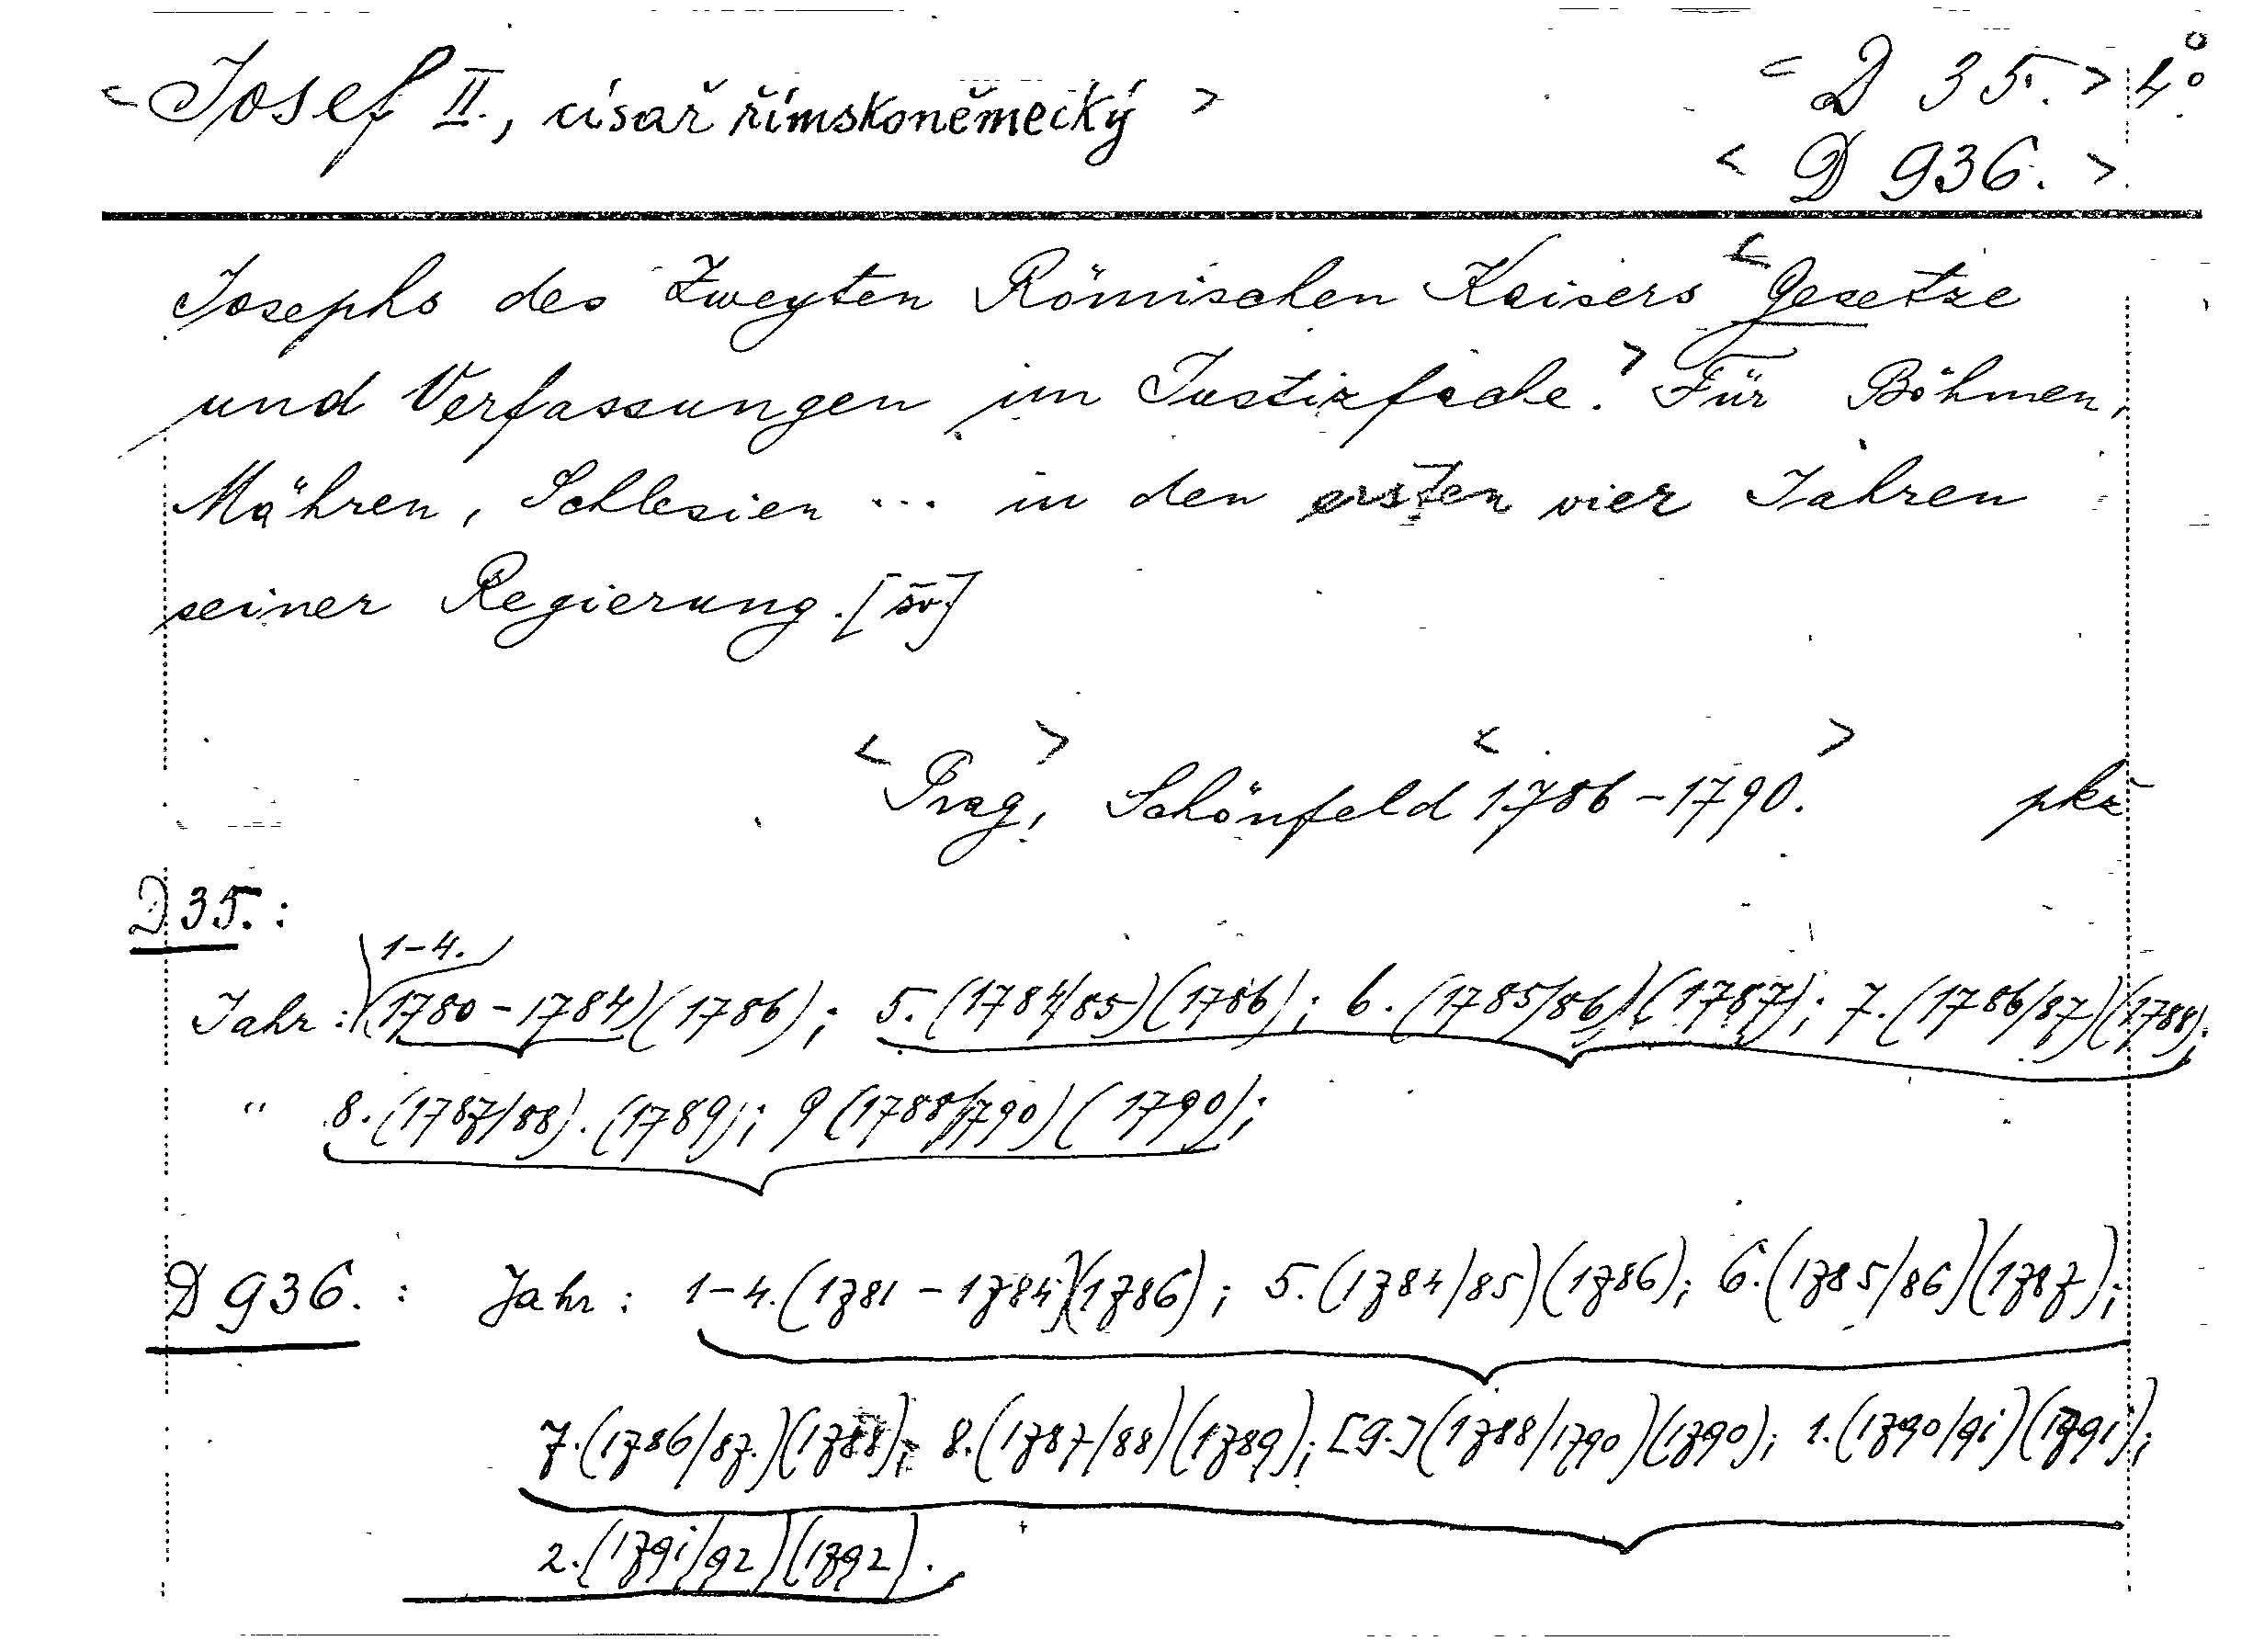 <Josef II., císař římskoněmecký> <D 35.> 4°
<D 936.>
Josephs des Zweyten Römischen Kaisers <Gesetze
und Verfassungen im Justizfache.> Für Böhmen,
Mähren, Schlesien ... in den ersten vier Jahren
seiner Regierung. [sv.]
<Prag,> Schönfeld <1786-1790.> pkz
D 35.:
1-4.
Jahr: (1780-1784)(1786); 5.(1784/85)(1786); 6.(1785/86)(1787); 7.(1786/87)(1788);
" 8.(1787/88).(1789); 9(1788/1790)(1790);
D 936.: Jahr: 1-4.(1781-1784)(1786); 5.(1784/85)(1786); 6.(1785/86)(1787);
7.(1786/87.)(1788); 8.(1787/88)(1789); [9.](1788/1790)(1790); 1.(1790/91)(1791);
2.(1791/92)(1792).